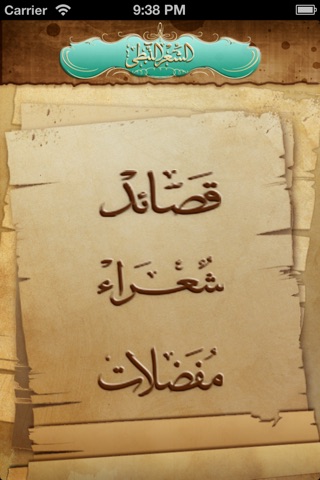 Carrier 9:38 PM
الشعر النبطي
قَصَائد
شُعَراء
مُفَضلات